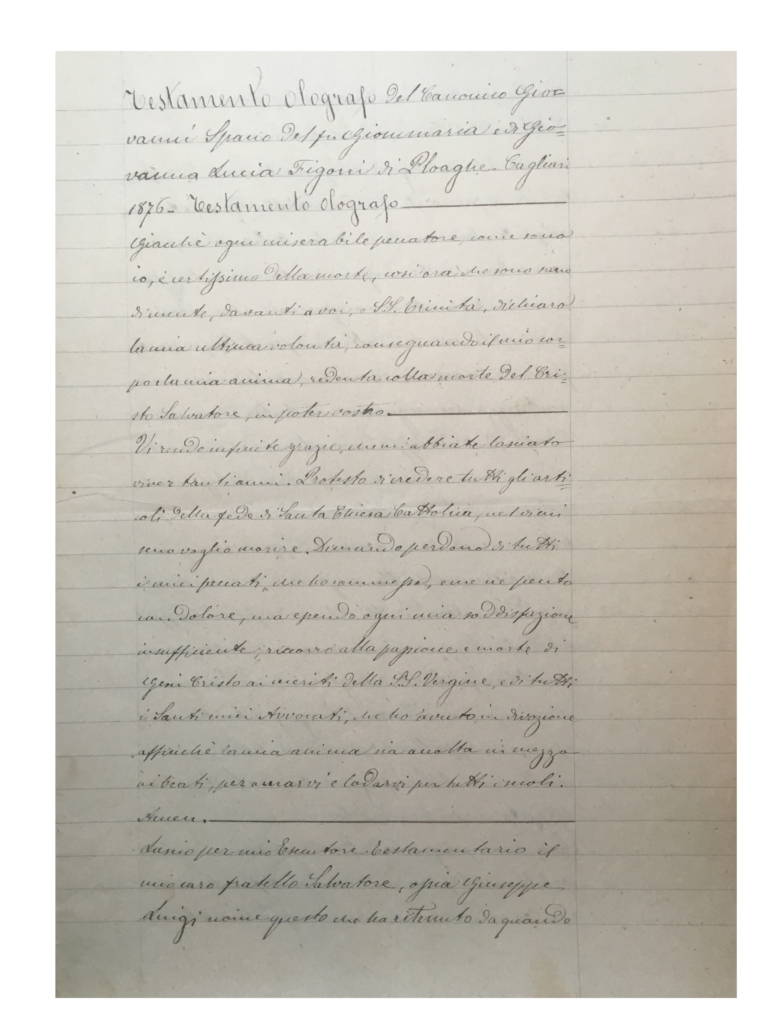 Testamento olografo del Canonico Gio=
vanni Spano del fu Giommaria e di Gio=
vanna Lucia Figoni di Ploaghe - Cagliari
1876 - Testamento olografo
Giacchè ogni miserabile peccatore, come sono
io, è certissimo della morte, così ora che sono sano
di mente, davanti a voi, o S.S. Trinità, dichiaro
la mia ultima volontà, consegnando il mio cor=
po e la mia anima, redenta colla morte del Cri=
sto Salvatore, in poter vostro.
Vi rendo infinite grazie, che mi abbiate lasciato
viver tanti anni. Protesto di credere tutti gli arti=
coli della fede di Santa Chiesa Cattolica, nel di cui
seno voglio morire. Dimando perdono di tutti
i miei peccati, che ho commesso, e me ne pento
con dolore, ma essendo ogni mia soddisfazione
insufficiente, ricorro alla passione e morte di
Gesù Cristo ai meriti della S.S. Vergine, e di tutti
i Santi miei Avvocati, che ho avuto in divozione
affinchè la mia anima sia accolta in mezzo
ai beati, per amarvi e lodarvi per tutti i secoli.
Amen.
Lascio per mio Esecutore Testamentario il
mio caro fratello Salvatore, ossia Giuseppe
Luigi nome questo che ha ritenuto da quando